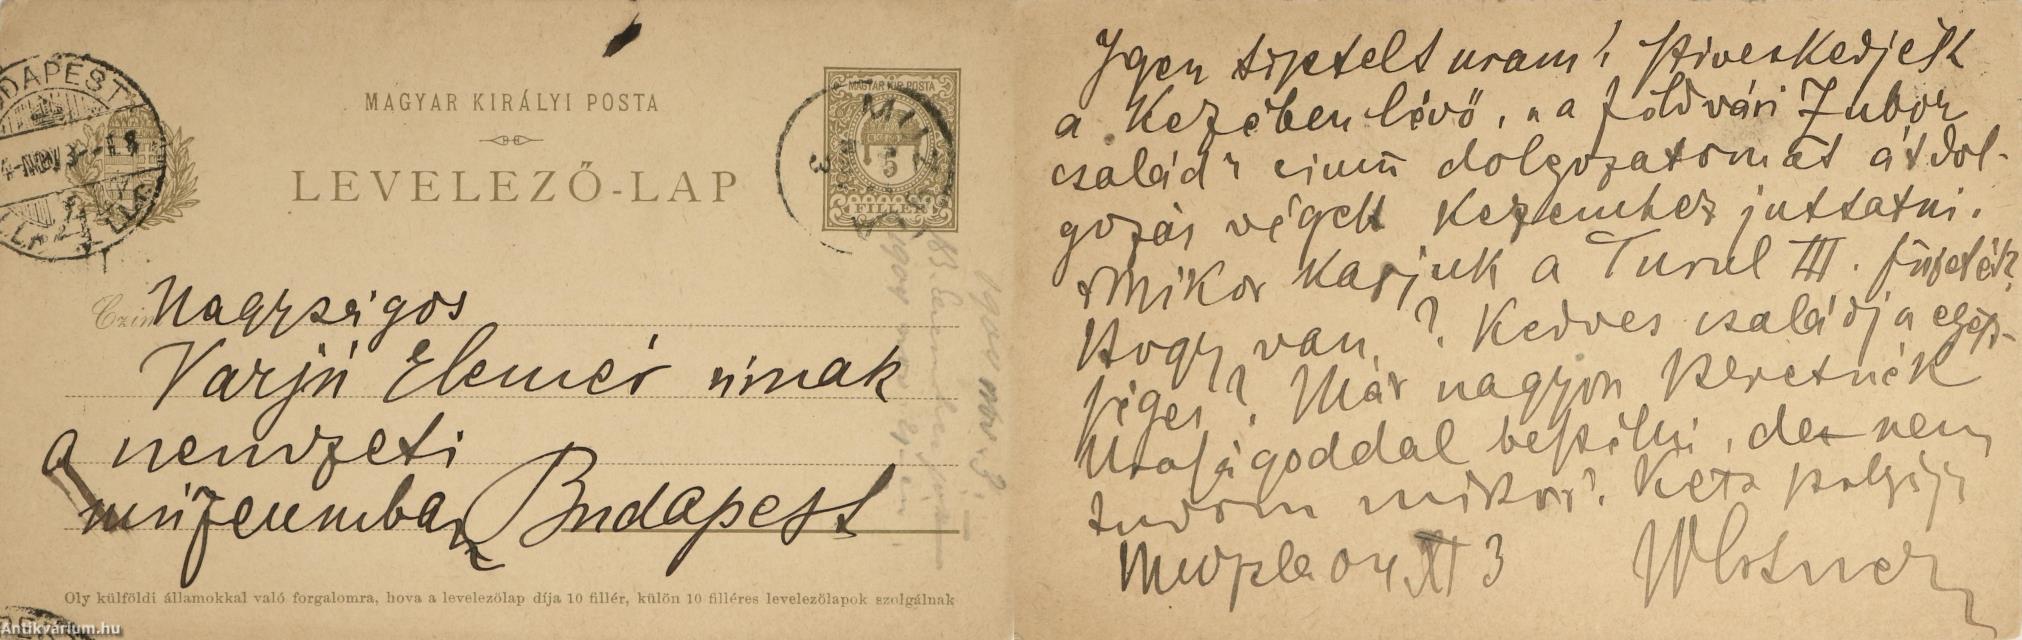 MAGYAR KIRÁLYI POSTA
LEVELEZŐ-LAP
MAGYAR KIR. POSTA
5
FILLÉR
BUDAPEST
4-NOV
Nagyságos
Varjú Elemér úrnak
a nemzeti
múzeumban Budapest
Oly külföldi államokkal való forgalomra, hova a levelezőlap díja 10 fillér, külön 10 filléres levelezőlapok szolgálnak
Igen tisztelt uram! Sziveskedjék
a kezében lévő, „a földvári Zubor
család" cimű dolgozatomat átdol-
gozás végett kezemhez juttatni.
Mikor kapjuk a Turul III. füzetét?
Hogy van? Kedves családja egés-
séges? Már nagyon szeretnék
Uraságoddal beszélni, de nem
tudom mikor? Kész szolgája
04 XI 3
Antikvárium.hu